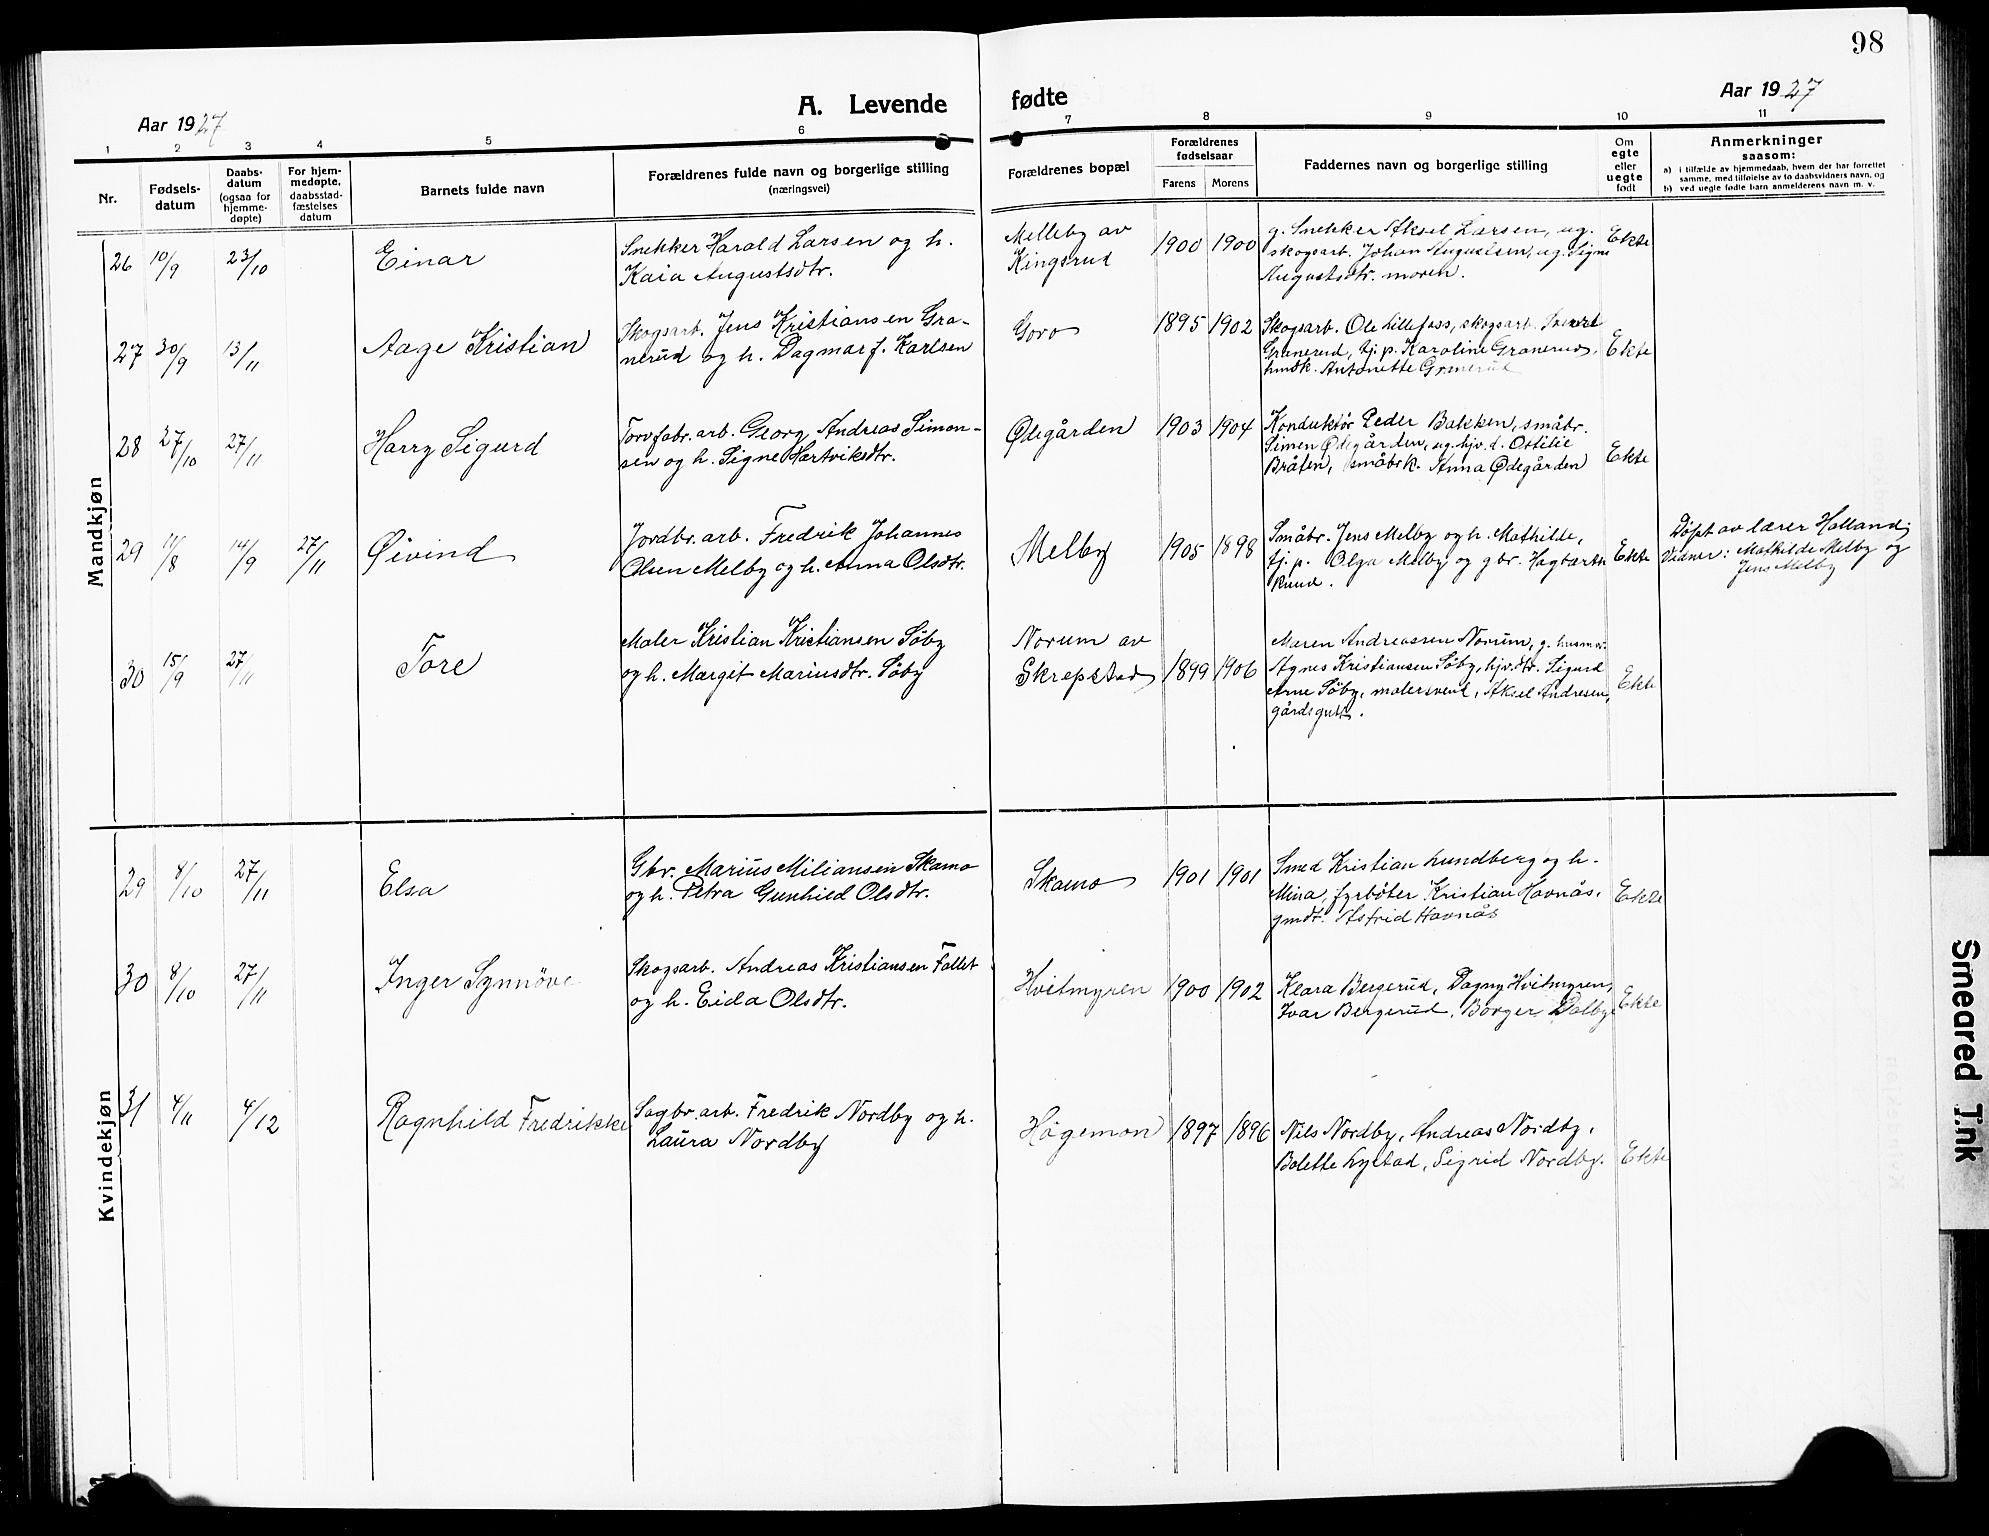 98
Aar 1927
A. Levende fødte
Aar 1927
1 2 3 4 5 6 7 8 9 10 11
Nr.
Fødsels-
datum
Daabs-
datum
(ogsaa for
hjemme-
døpte)
For hjem-
medøpte,
daabsstad-
fæstelses
datum
Barnets fulde navn
Forældrenes fulde navn og borgerlige stilling
(næringsvei)
Forældrenes bopæl
Forældrenes
fødselsaar
Farens Morens
Faddernes navn og borgerlige stilling
Om
egte
eller
uegte
født
Anmerkninger
saasom:
a) i tilfælde av hjemmedaab, hvem der har forrettet
samme, med tilføielse av to daabsvidners navn, og
b) ved uegte fødte barn anmelderens navn m. v.
Mandkjøn
26 10/9 23/10 Einar
Snekker Harald Larsen og h.
Kaia Augustsdtr.
Melleby av
Kingsrud
1900 1900
g. Snekker Aksel Larsen, ug.
skogsarb. Johan Augustsen, ug. Signe
Augustsdtr. moren.
Ekte
27 30/9 13/11 Aage Kristian
Skogsarb. Jens Kristiansen Gra-
nerud og h. Dagmar f. Karlsen
Goro
1895 1902
Skogsarb. Ole Lillefoss, skogsarb.
Granerud, tj. p. Karoline Granerud,
hmdk. Antonette Granerud
Ekte
28 27/10 27/11 Harry Sigurd
Torvfabr. arb. Georg Andreas Simon-
sen og h. Signe Hartviksdtr.
Ødegården
1903 1904
Konduktør Peder Bakken, småbr.
Simen Ødegården, ug. hjv. d. Ottilie
Bråten, småbrk. Anna Ødegården
Ekte
29 11/8 14/9 27/11 Øivind
Jordbr. arb. Fredrik Johannes
Olsen Melby og h. Anna Olsdtr.
Melby
1905 1898
Småbr. Jens Melby og h. Mathilde,
tj. p. Olga Melby og gbr. Hagbarth
Ruud.
Ekte
Døpt av lærer Holland;
Vidner: Mathilde Melby og
Jens Melby
30 15/9 27/11 Tore
Maler Kristian Kristiansen Søby
og h. Margit Mariusdtr. Søby
Norum av
Skrepstad
1899 1906
Maren Andreassen Norum, g. husmor
Agnes Kristiansen Søby, hjv. dtr. Sigurd
Arne Söby, malersvent, Aksel Andresen,
gårdsgutt.
Ekte
Kvindekjøn
29 8/10 27/11 Elsa
Gbr. Marius Miliansen Skamo
og h. Petra Gunhild Olsdtr.
Skamo
1901 1901
Smed Kristian Lundberg og h.
Mina, fyrbøter Kristian Havnås,
gmdt. Astrid Havnås
Ekte
30 8/10 27/11 Inger Synnöve
Skogsarb. Andreas Kristiansen Fallet
og h. Eida Olsdtr.
Hvitmyren
1900 1902
Klara Bergerud, Dagny Hvitmyren,
Ivar Bergerud, Borger Dalby
Ekte
31 4/11 4/12 Ragnhild Fredrikke
Sagbr. arb. Fredrik Nordby og h.
Laura Nordby
Hågemon
1897 1896
Nils Nordby, Andreas Nordby,
Bolette Lystad, Sigrid Nordby.
Ekte
Smeared Ink